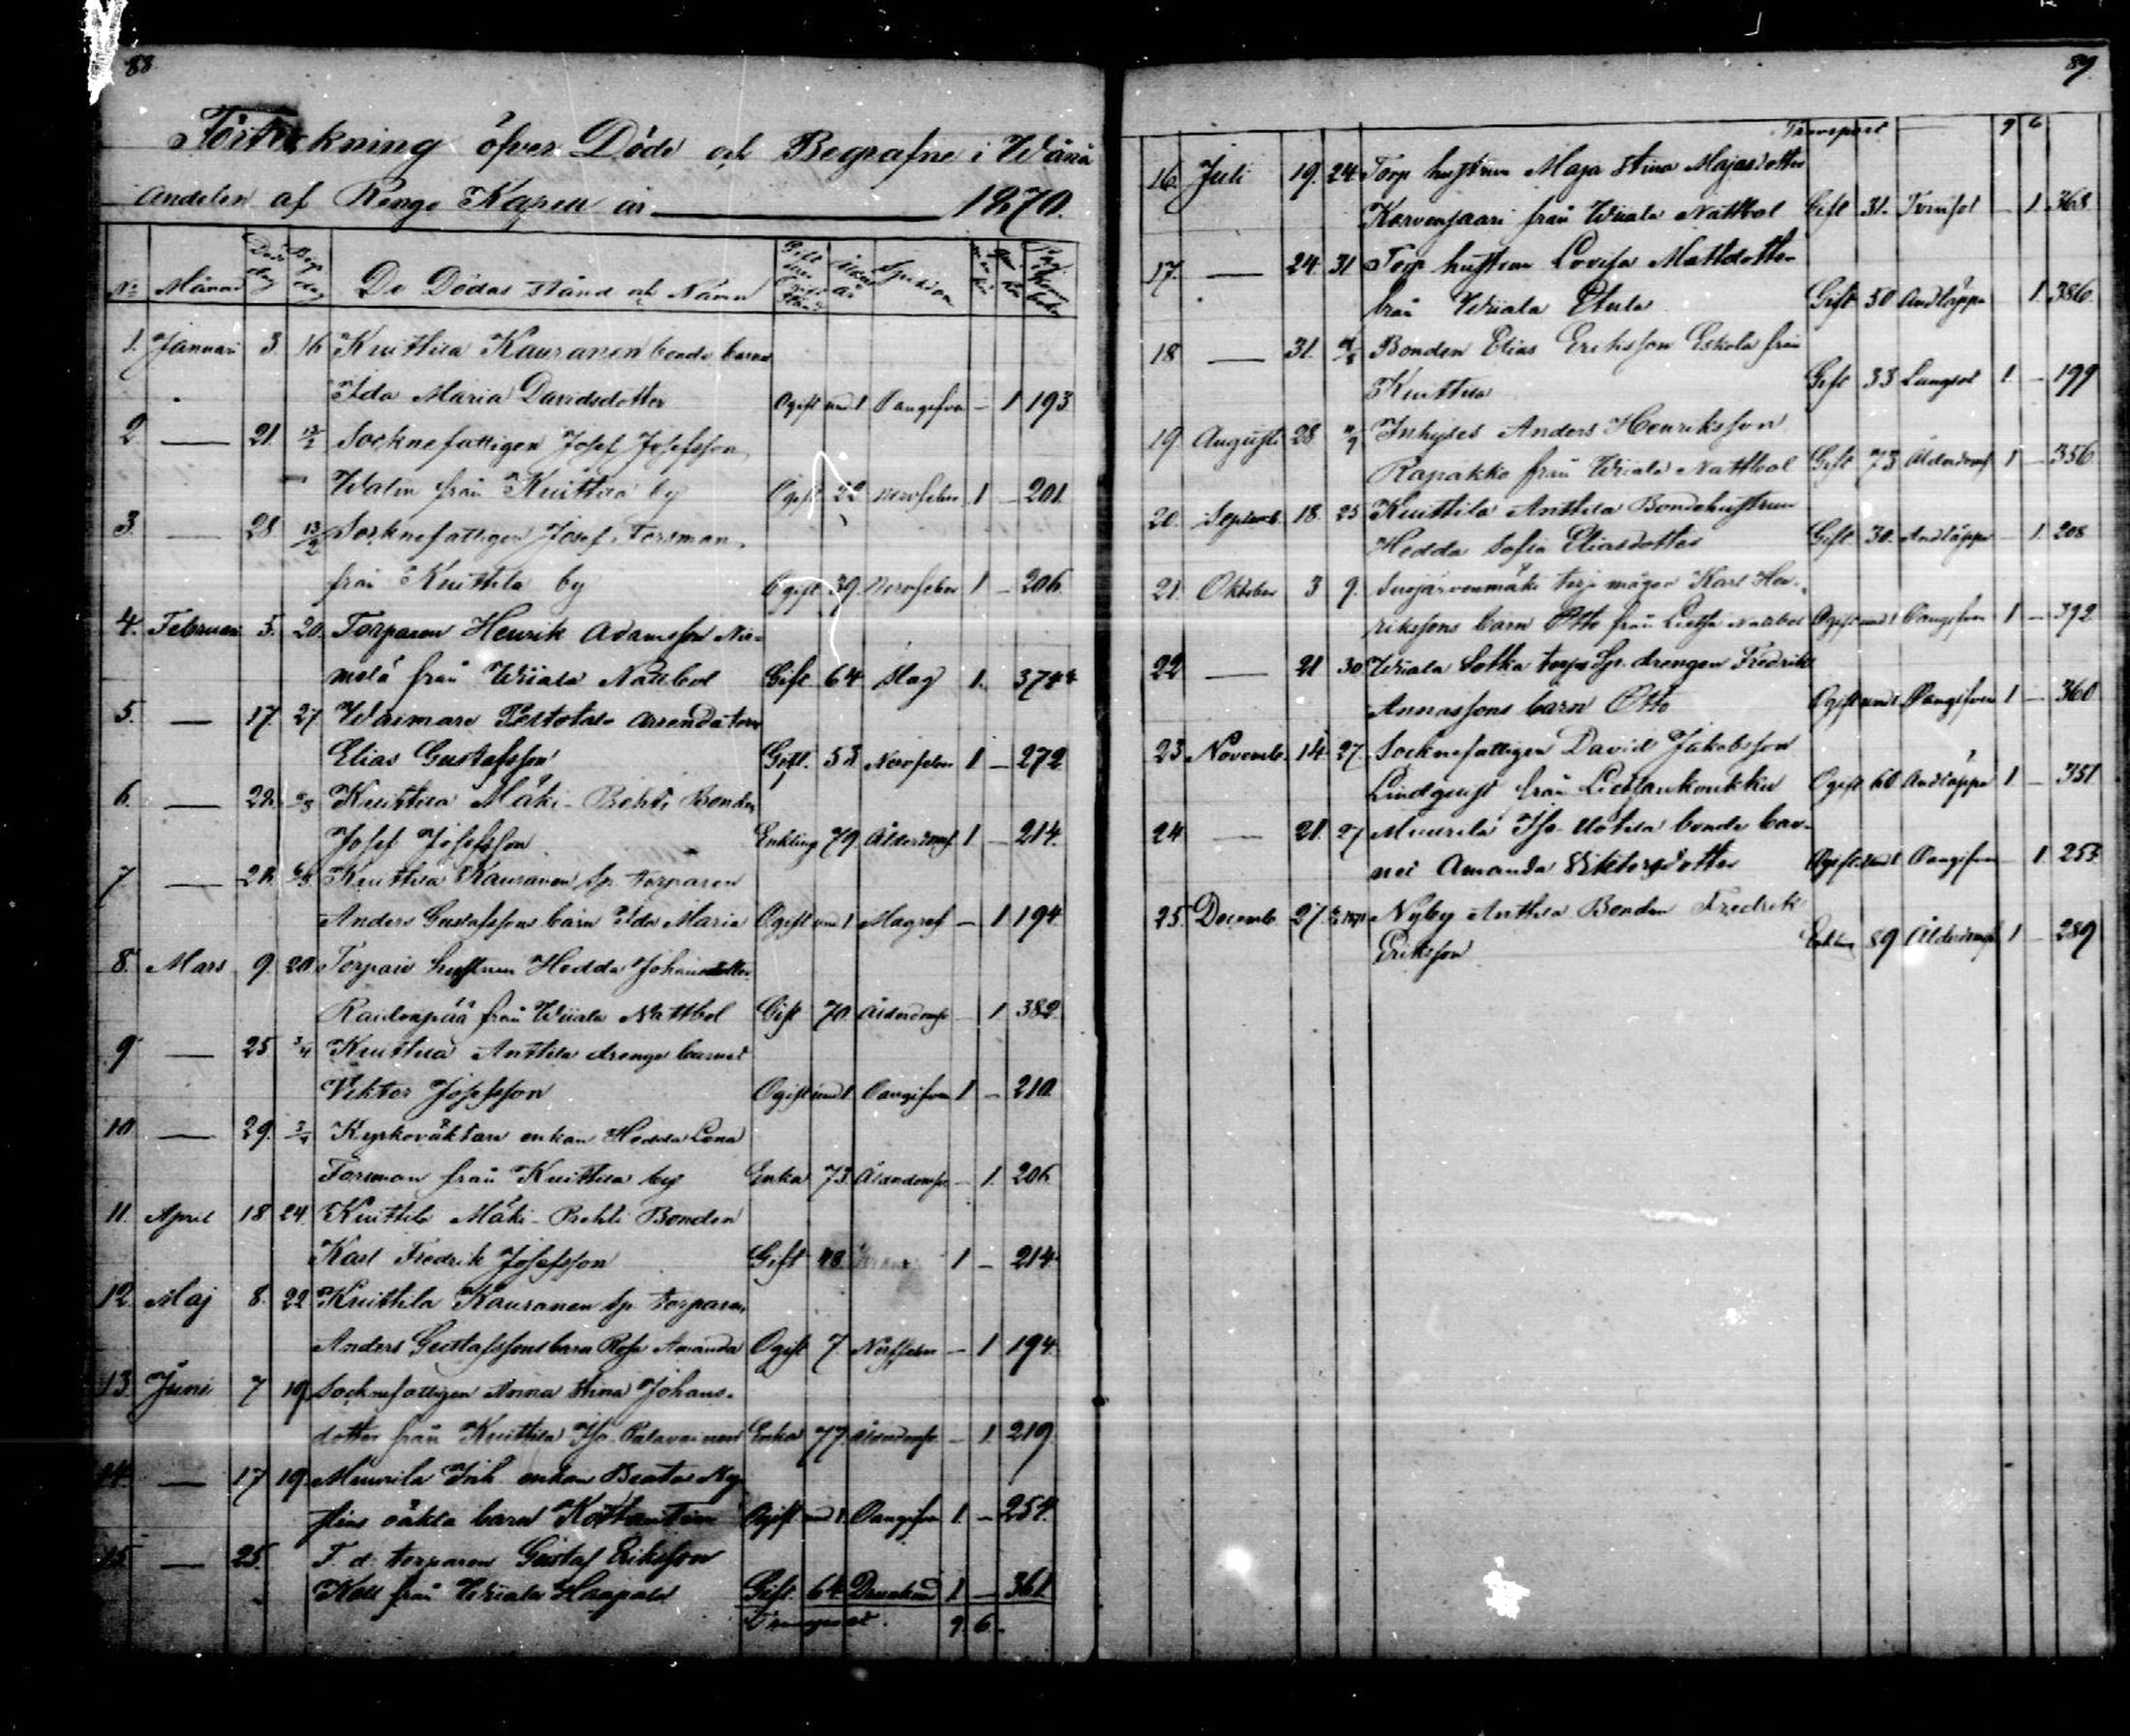 88
Förteckning öfver Döde och Begrafne i Wånå
Andelen af Rengo Kapell år 1870.
No Månad Död dag Begr dag De Dödas stånd och Namn Gift eller Ogift stånd Ålder år Sjukdom Mankön Qvinkön Pag. i Kom. boken
1. Januari 3. 16 Kuittila Kauranen bonde barnet
Ida Maria Davidsdotter Ogift und 1 Oangifven – 1 193
2. — 21. 13/2 Socknefattigen Josef Josefsson
Walin från Kuittila by Ogift 22 Nervfeber 1 – 201.
3. — 28 13/2 Socknefattigen Josef Forsman
från Kuittila by Ogift 39. Nervfeber 1 – 206.
4. Februari 5. 20. Torparen Henrik Adamsson Nie-
melä från Wiiala Nattbol Gift 64 Slag 1. 374
5. — 17. 27 Warmare Arrendatorn
Elias Gustafsson Gift. 53 Nervfeber 1 – 272
6. — 22. Kuittila Mäki-Prehti Bonden
Josef Josefsson Enkling 79 Ålderdoms 1 – 214.
7 — Kuittila Kauranen Sp. torparen
Anders Gustafssons barn Ida Maria Ogift und 1 Magref – 1 194
8. Mars 9 20. Torpare hustrun Hedda Johansdotter
Raidonpää från Wiiala Nattbol Gift 70. Ålderdoms – 1 382.
9 — 25 3/4 Kuittila Anttila drenge barnet
Viktor Josefsson Ogift und 1 Oangifven 1 – 210.
10 — 29. 3/4 Kyrkoväktare enkan Hedda Lena
Forsman från Kuittila by Enka 73. Ålderdoms – 1. 206
11. April 18 24. Kuittila Mäki-Prehti Bonden
Karl Fredrik Josefsson Gift 48 1 – 214
12. Maj 8. 22 Kuittila Kauranen Sp. torparen
Anders Gustafssons barn Rosa Amanda Ogift 7. Nerffeber – 1 194.
13. Juni 7 19 Socknefattigen Anna Stina Johans-
dotter från Kuittila Iso-Palavainen Enka 77. Ålderdoms – 1. 219.
14. — 17 19 Muurila Inh. enkan Beata
oäkta barn Konstantin Ogift und 1. Oangifven 1. – 254.
15. — 25. F. d. torparen Gustaf Eriksson
från Wiiala Haapala Gift. 64. Drunknad 1 – 361.
Transport. 9. 6.
89.
Transport — 9 6
16. Juli 19. 24. Torp hustrun Maja Stina Majasdotter
Korvenjaari från Wiiala Nattbol Gift 31. Tvinsot – 1 368
17. — 24. 31 Torp hustrun Lovisa Mattdotter
från Wiiala Etula Gift 50 Andtäppa 1. 386.
18 — 31. Bonden Elias Eriksson Eskola från
Kuittila Gift 33 Lungsot 1. – 199
19. Augusti 28 Inhyses Anders Henriksson
Rapakko från Wiiala Nattbol Gift 73 Ålderdoms 1 – 356
20. Septemb. 18. 25 Kuittila Anttila Bondehustrun
Hedda Sofia Eliasdotter Gift. 30. Andtäppa – 1. 208
21. Oktober 3 9. Susjärvenmäki torp mågen Karl Hen-
rikssons barn Otto från Liesja Nattbol Ogift und 1 Oangifven 1 – 392
22 — 21 30 Wiiala Sotka torps Sp. drengen Fredrik
Annassons barn Otto Ogift und 1 Oangifven 1 – 360
23 Novemb. 14. 27. Socknefattigen David Jakobsson
Lindquist från Liesjankoukku Ogift 60 Andtäppa 1 – 351
24 — 21. 27 Muurila Iso-Uotila bonde bar-
net Amanda Viktorsdotter Ogift und 1 Oangifven 1 253.
25. Decemb. 27. Nyby Anttila Bonden Fredrik
Eriksson Enkling 89 Ålderdoms 1 – 289